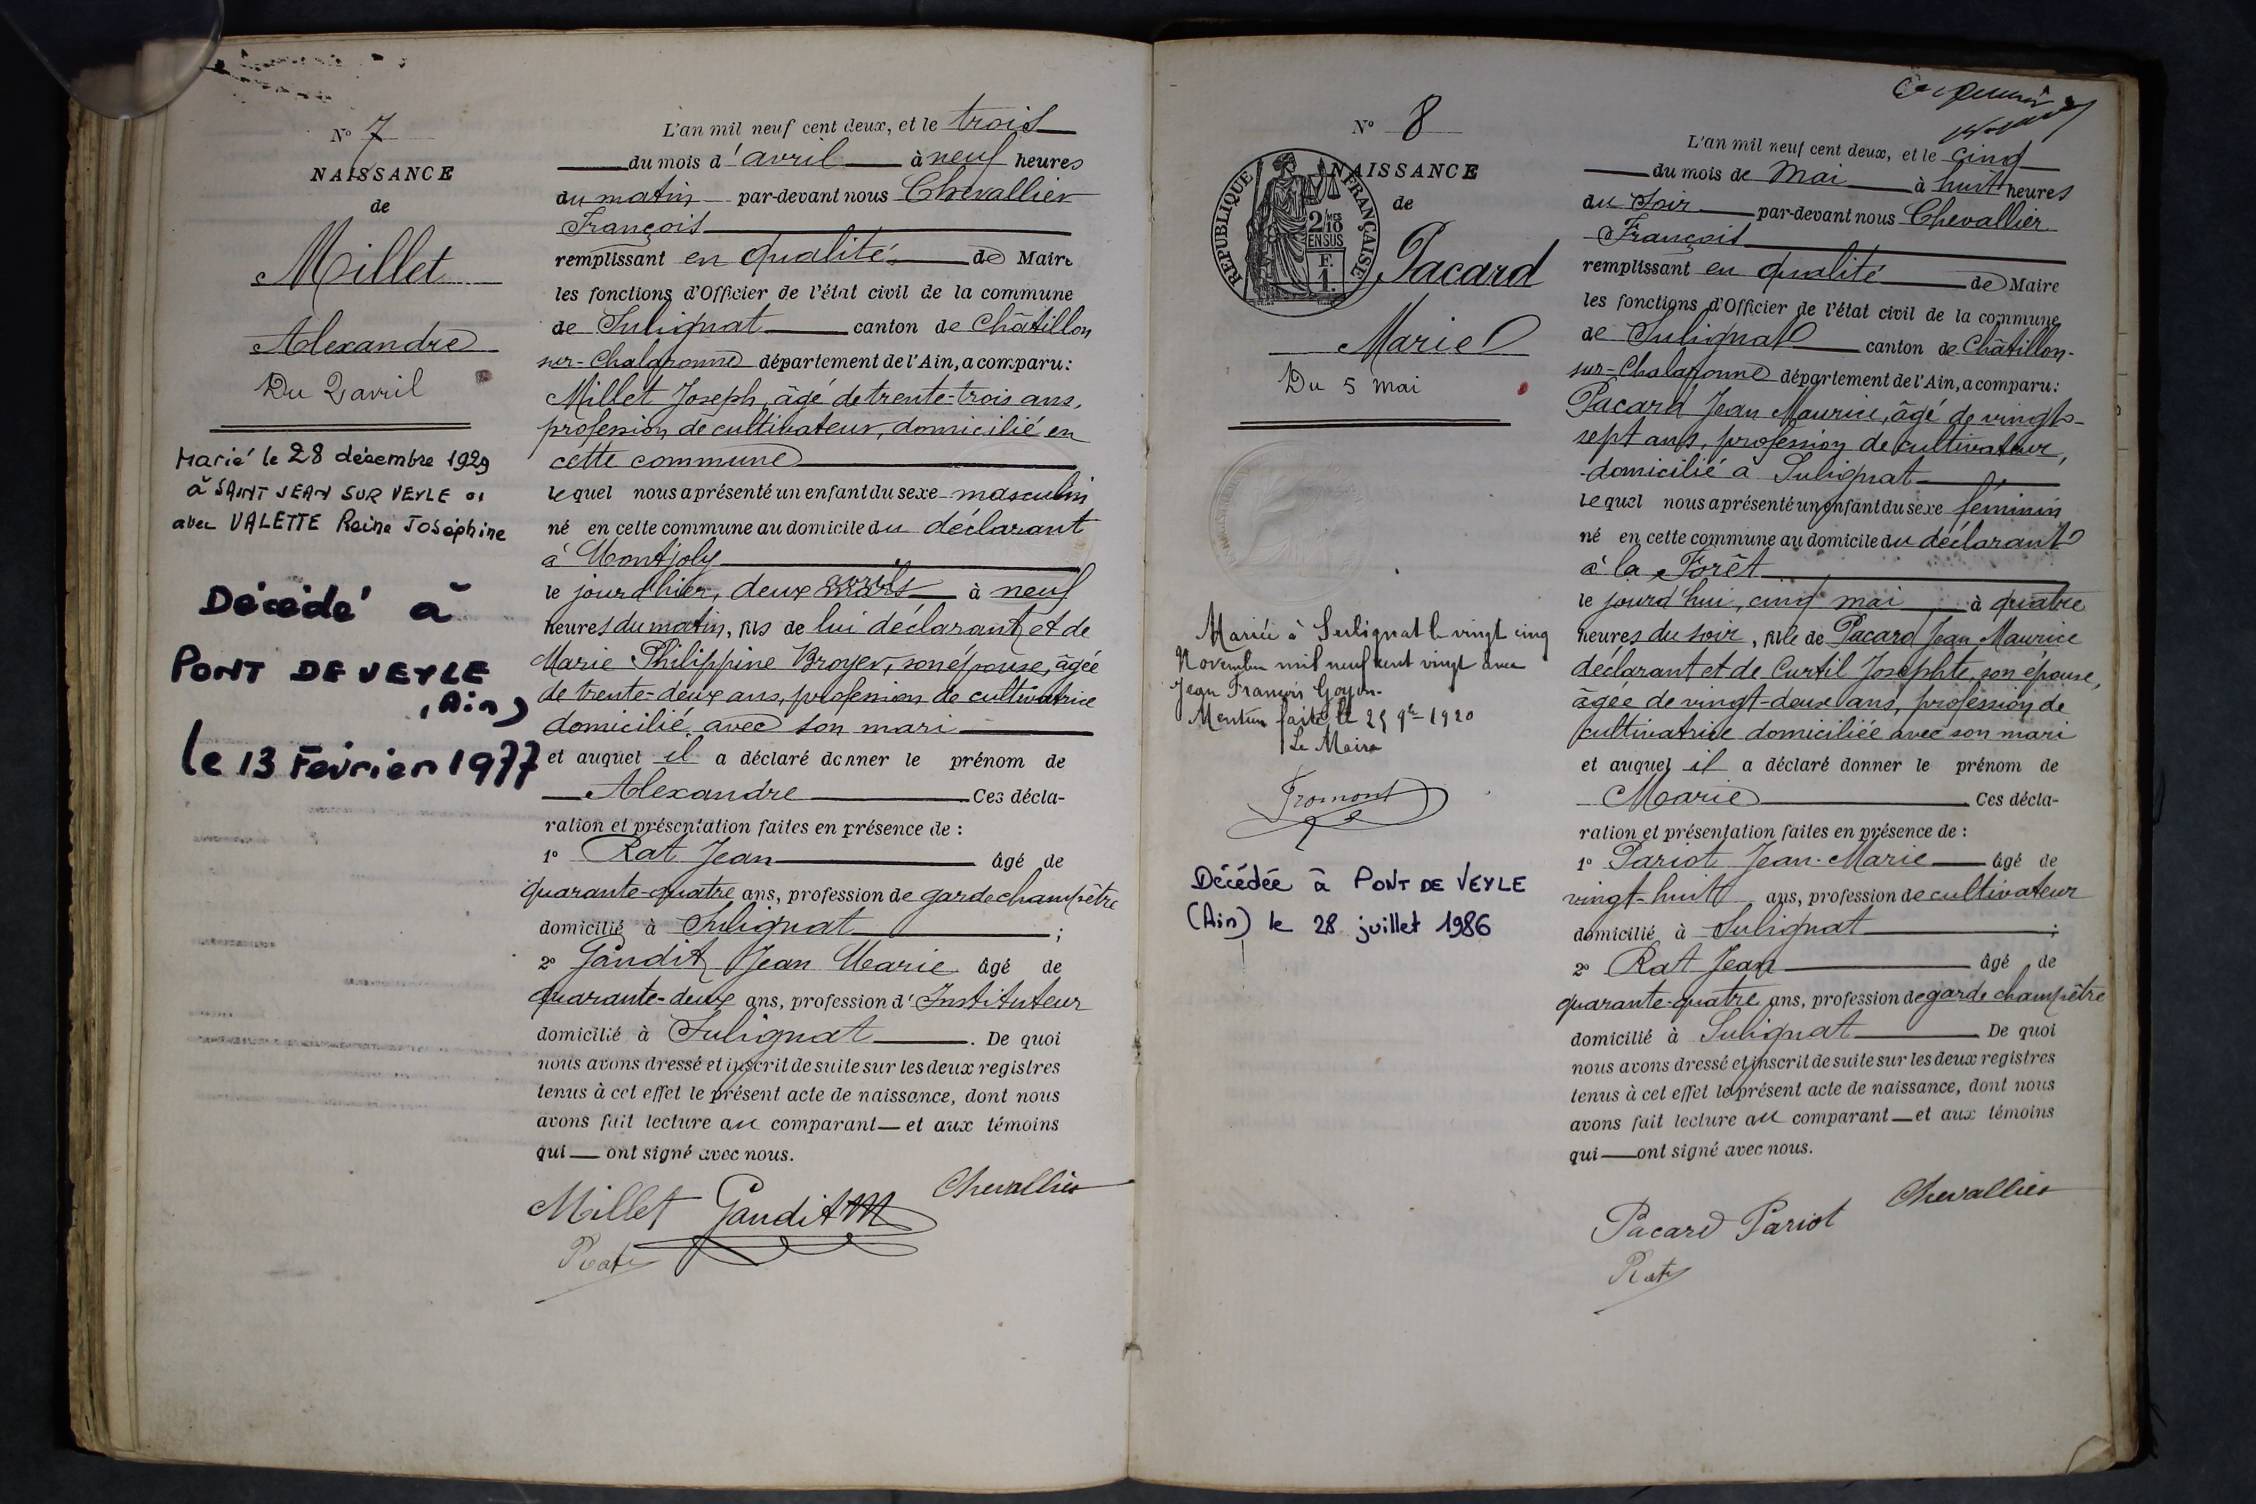 N° 7
NAISSANCE
de
Millet
Alexandre
Du 2 avril
Marié le 28 décembre 1929
à SAINT JEAN SUR VEYLE 01
avec VALETTE Reine Joséphine
Décédé à
PONT DE VEYLE
(Ain)
le 13 Février 1977
L'an mil neuf cent deux, et le trois
du mois d'avril à neuf heures
du matin par-devant nous Chevallier
François
remplissant en qualité de Maire
les fonctions d'Officier de l'état civil de la commune
de Sulignat canton de Châtillon
sur-Chalaronne département de l'Ain, a comparu :
Millet Joseph, âgé de trente-trois ans,
profession de cultivateur, domicilié en
cette commune
lequel nous a présenté un enfant du sexe masculin
né en cette commune au domicile du déclarant
à Montjoly
le jour d'hier, deux avril à neuf
heures du matin, fils de lui déclarant et de
Marie Philippine Broyer, son épouse, âgée
de trente-deux ans, profession de cultivatrice
domicilié avec son mari
et auquel il a déclaré donner le prénom de
Alexandre Ces décla-
ration et présentation faites en présence de :
1° Rat Jean âgé de
quarante-quatre ans, profession de garde champêtre
domicilié à Sulignat ;
2° Gaudit Jean Marie âgé de
quarante-deux ans, profession d'Instituteur
domicilié à Sulignat . De quoi
nous avons dressé et inscrit de suite sur les deux registres
tenus à cet effet le présent acte de naissance, dont nous
avons fait lecture au comparant et aux témoins
qui ont signé avec nous.
Chevallier
Millet Gaudit JM
Rat
N° 8
NAISSANCE
de
REPUBLIQUE FRANÇAISE
2/10 MES
EN SUS
F.
1.
Pacard
Marie
Du 5 mai
Mariée à Sulignat le vingt cinq
Novembre mil neuf cent vingt avec
Jean François Goyon.
Mention faite le 25 9bre 1920
Le Maire
Fromont
Décédée à PONT DE VEYLE
(Ain) le 28 juillet 1986
L'an mil neuf cent deux, et le cinq
du mois de Mai à huit heures
du Soir par-devant nous Chevallier
François
remplissant en qualité de Maire
les fonctions d'Officier de l'état civil de la commune
de Sulignat canton de Châtillon-
sur-Chalaronne département de l'Ain, a comparu :
Pacard Jean Maurice, âgé de vingt-
sept ans, profession de cultivateur,
domicilié à Sulignat
lequel nous a présenté un enfant du sexe féminin
né en cette commune au domicile du déclarant
à la Forêt
le jourd'hui, cinq mai à quatre
heures du soir, fille de Pacard Jean Maurice
déclarant et de Curtil Josephte, son épouse,
âgée de vingt-deux ans, profession de
cultivatrice domiciliée avec son mari
et auquel il a déclaré donner le prénom de
Marie Ces décla-
ration et présentation faites en présence de :
1° Pariot Jean-Marie âgé de
vingt-huit ans, profession de cultivateur
domicilié à Sulignat ;
2° Rat Jean âgé de
quarante-quatre ans, profession de garde champêtre
domicilié à Sulignat De quoi
nous avons dressé et inscrit de suite sur les deux registres
tenus à cet effet le présent acte de naissance, dont nous
avons fait lecture au comparant et aux témoins
qui ont signé avec nous.
Chevallier
Pacard Pariot
Rat